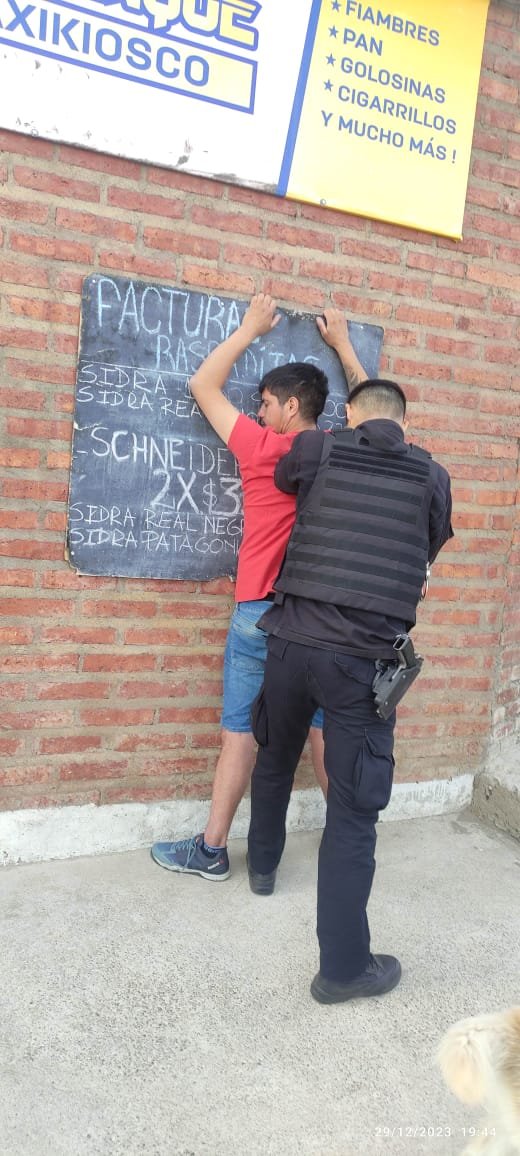 AXIKIOSCO
★ FIAMBRES
★ PAN
★ GOLOSINAS
★ CIGARRILLOS
Y MUCHO MÁS !
FACTURAS
SIDRA
SIDRA REA
SCHNEIDER
2X $3
SIDRA REAL NEGR
SIDRA PATAGON
29/12/2023 19:44